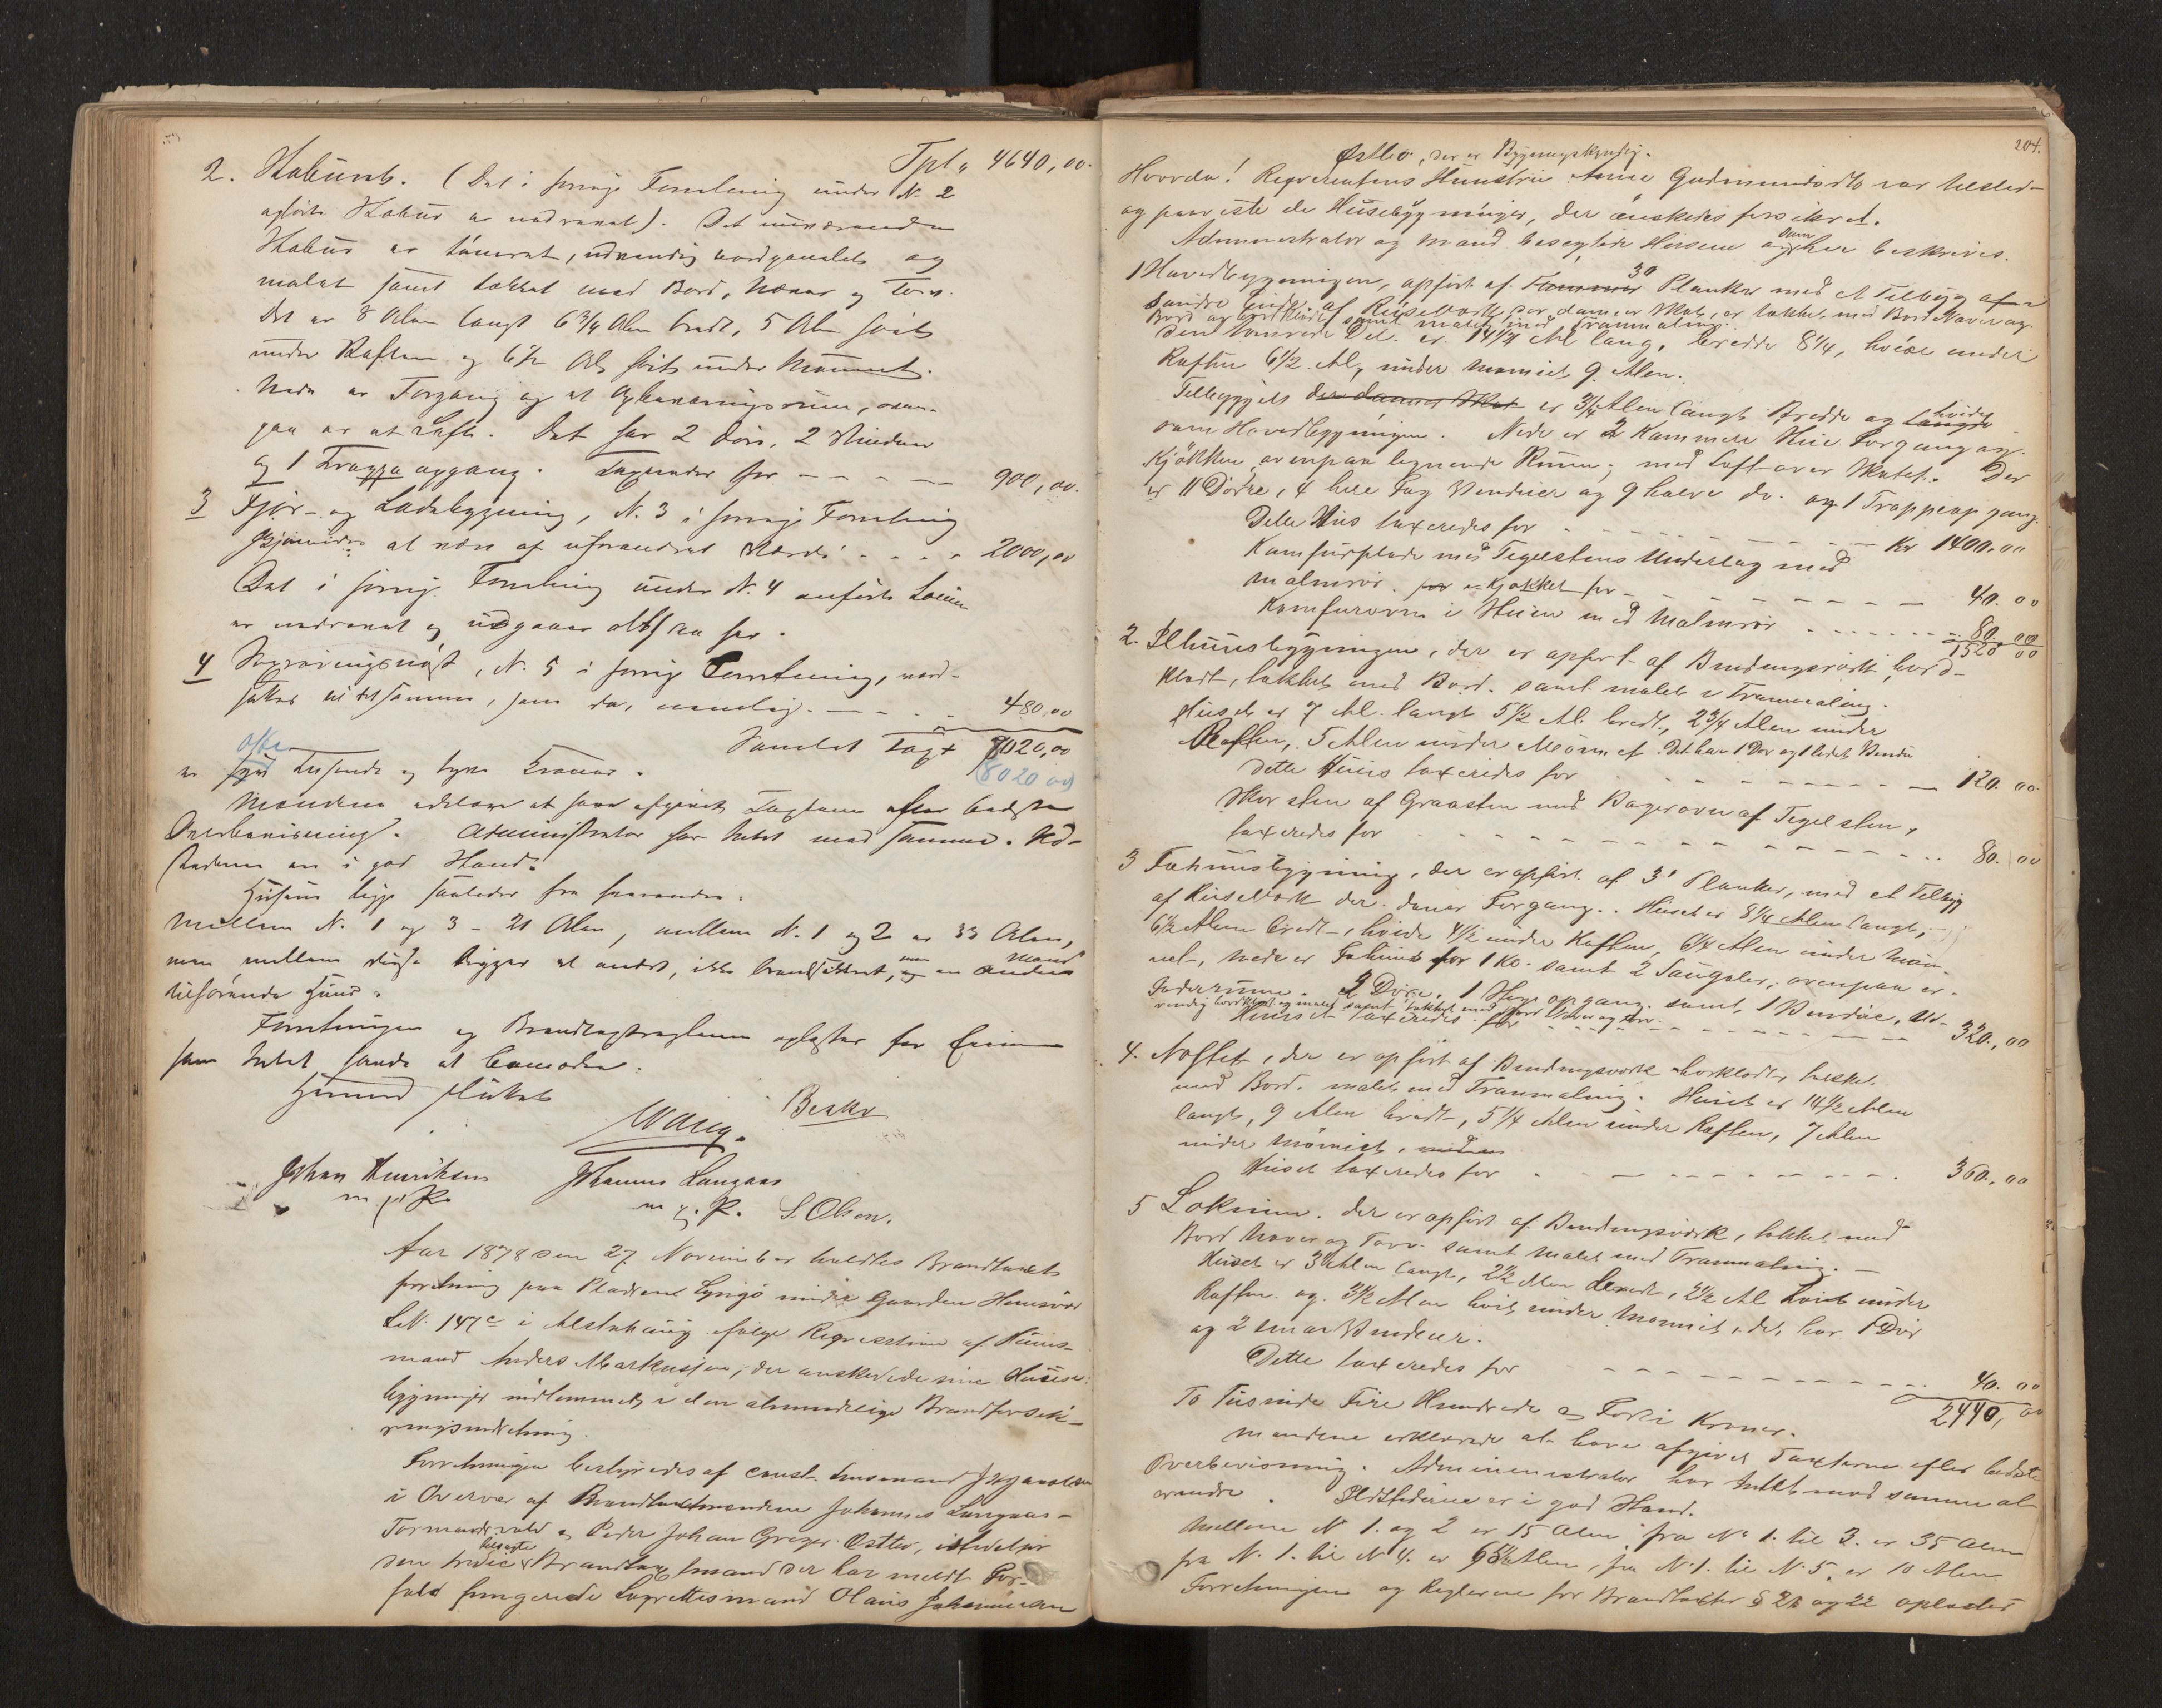 Tspl. 4640,00.
2. Stabuurets. (Det i forrige Forretning under N. 2
opførte Stabur er nedrevet). Det nuværende
Stabur er tømret, udvendig bordpanelet og
malet samt tækket med Bord, Næver og Torv.
Det er 8 Alen langt 6 3/4 Alen bredt, 5 Alen høit
under Raften og 6 1/2 Al. høit under Mønnet.
Nede er Forgang og et Opbevaringsrum, oven-
paa er et Loft. Det har 2 Døre, 2 Vinduer
og 1 Trappeopgang. Taxeredes for - - - - 900,00.
3 Fjøs- og Ladebygning, N. 3 i forrige Forretning
skjønnedes at være af uforandret Værdi . . . . 2000,00
Det i forrige Forretning under N. 4 anførte
er nedrevet og udgaaer altsaa her.
4 N. 5 i forrige Forretning, værd-
sættes til det samme, som da, nemlig. - - - 480,00
Samlet Taxt 7020,00
8020 00
otte
er syv tusende og tyve Kroner.
Mændene erklærer at have afgivet Taxterne efter bedste
Overbeviisning. Administrator har Intet mod samme. Ild-
stederne ere i god Stand.
Husene ligge saaledes fra hverandre:
Mellem N. 1 og 3 - 21 Alen, mellem N. 1 og 2 er 33 Alen,
men mellem disse ligger et andet, ikke brandforsikret, men en anden Mand
tilhørende Huus.
Forretningen og Brandtaxtreglerne oplæstes for Eieren
som Intet havde at bemærke.
Forretningen sluttet
Wang. Benko
Johan Henriksen Johannes Langaas
m. p. P. m. p. P. S. Olsen.
Aar 1878 den 27 November holdtes Brandtaxt
forretning paa Pladsene Lyngø under Gaarden Hamnvær
L.N. 147c i Alstahaug ifølge Reqvisition af Huus-
mand Anders Markussen, der ønskede sine Huuse-
bygninger indlemmet i den almindelige Brandforsik-
ringsindretning.
Forretningen bestyredes af const. Lensmand
i Overvær af Brandtaxtmændene Johannes Langaas-
og Peder Johan Greger Østbø, istedetfor
den tredie beskikkede Brandtaxtmand der har meldt For-
fald fungerede Lagrettesmand Olaus Johannesen
204.
Østbø, der er Bygningskyndig.
Hvorda! Reqvirentens Huustru Anne Gudmundsdtr var tilsted-
og paaviste de Huusebygninger, der ønskedes forsikret.
Administrator og Mænd besigtede Husene som her beskrives.
1 Hovedbygningen, opført af 30 Planker med et Tilbyg af
søndre Ende af Reisverk der danner Skut, er tækket med Bord Næver og
Bord og bordklædt samt malet med Tranmaling.
Den tømrede Del er 14 1/4 Al lang, Bredde 8 1/4, høide under
Raften 6 1/2 Al, under Mønnet 9 Alen.
Tilbygget der danner Skut er 3 1/4 Alen langt Bredde og høide
som Hovedbygningen. Nede er 2 Kammere Stue Forgang og
Kjøkken, ovenpaa lignende Rum; med Loft over Skutet. Der
er 11 Døre, 4 hele Fag Vinduer og 9 halve do. og 1 Trappeopgang.
Dette Huus taxeredes for - - - - Kr 1400,00
Komfurplade med Tegelstens Underlag med
Malmrør i Kjøkket for - - - - 40. 00
Komfurovn i Stuen med Malmrør . . . . . 80. 00
1520 00
2. Ildhuusbygningen, der er opført af Bindingsværk, bord-
klædt, tækket med Bord samt malet i Tranmaling.
Huset er 7 Al. langt 5 1/2 Al. bredt, 2 3/4 Alen under
Raften, 5 Alen under Mønnet. Det har 1 Dør og 1 lidet Vindu
Dette Huus taxeredes for - - - - 120. 00.
Skorsten af Graasten med Bagerovn af Tegelsten,
taxeredes for - - - - 80. 00
3 Fæhuusbygning, der er opført af 3" Planker, med et Tilbyg
af Reisverk der danner Forgang. Huset er 8 1/4 Alen langt,
6 1/2 Alen bredt, høide 4 1/2 under Raften, 6 1/4 Alen under Møn-
net, nede er Fæhuus for 1 Ko samt 2 Saugaler, ovenpaa er
Foderrum. 2 Døre, 1 Opgang samt 1 Vindue, Ud-
vendig bordklædt og malet samt tækket med Bord Næver og Torv.
Huuset taxeredes for - - - - 320,00
4. Nøstet, der er opført af Bindingsværk bordklædt, tækket
med Bord, malet med Tranmaling. Huset er 14 1/2 Alen
langt, 9 Alen bredt, 5 1/4 Alen under Raften, 7 Alen
under Mønnet,
Huset taxeredes for - - - - 360,00
5 Lokum. der er opført af Bindingsværk, tækket med
Bord Næver og Torv samt malet med Tranmaling. -
Huset er 3 Alen langt, 2 1/2 Alen bredt, 2 1/2 Al høit under
Raften og 3 1/2 Alen høit under Mønnet, det har 1 Dør
og 2 smaa Vinduer.
Dette taxeredes for - - - - 40. 00
2440,00
To Tusinde Fire Hundrede og Forti Kroner.
Mændene erklærede at have afgivet Taxterne efter bedste
Overbevisning. Administrator har Intet mod samme at
erindre. Ildstederne er i god Stand.
Mellem N 1. og 2 er 15 Alen, fra N. 1. til 3. er 35 Alen
fra N. 1. til N. 4. er Alen, fra N. 1. til N. 5. er 10 Alen
Forretningen og Reglerne for Brandtaxter § 21 og 22 oplæstes